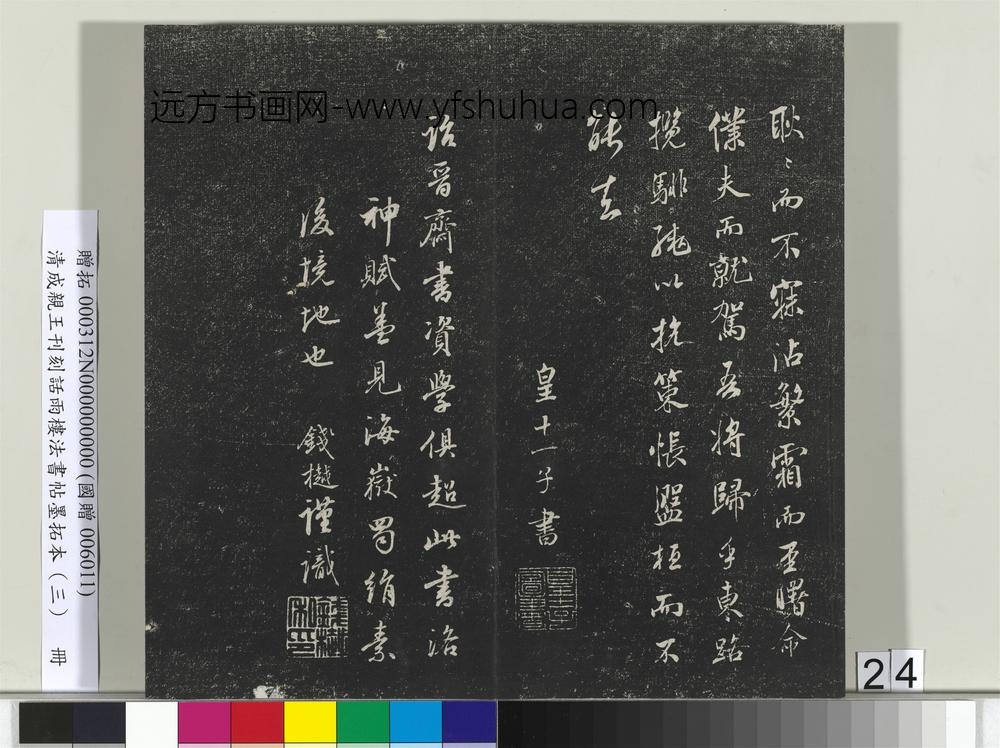 耿〻而不寐沾繁霜而至曙命
僕夫而就駕吾將歸乎東路
攬騑轡以抗策悵盤桓而不
能去
皇十一子書
詒晉齋書資學俱超此書洛
神賦並見海嶽蜀絹素
後境地也 錢樾謹識
远方书画网-www.yfshuhua.com
贈拓 000312N000000000 (國贈 006011)
清成親王刊刻話雨樓法書帖墨拓本(三) 冊
24